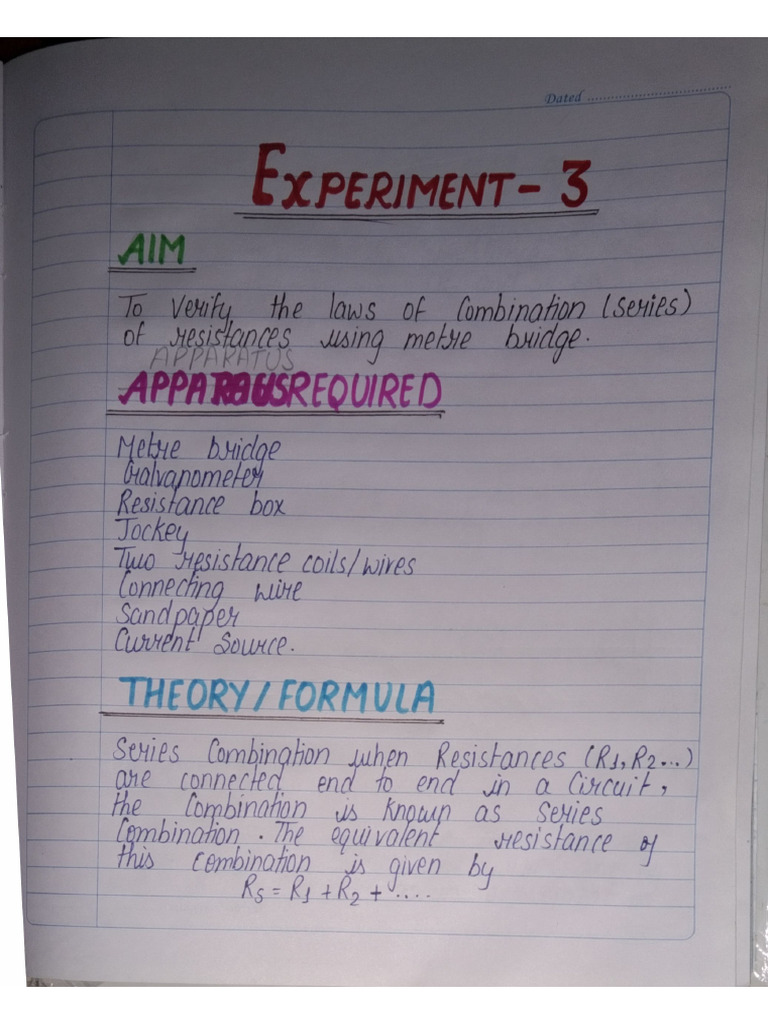 Dated
EXPERIMENT - 3
AIM
To verify the laws of Combination (series)
of resistances using metre bridge.
APPARATUS
APPARATUS REQUIRED
Metre bridge
Galvanometer
Resistance box
Jockey
Two resistance coils/wires
Connecting wire
Sandpaper
Current Source.
THEORY/FORMULA
Series Combination when Resistances (R1, R2...)
are connected end to end in a Circuit,
the Combination is known as series
Combination. The equivalent resistance of
this combination is given by
Rs = R1 + R2 + ....